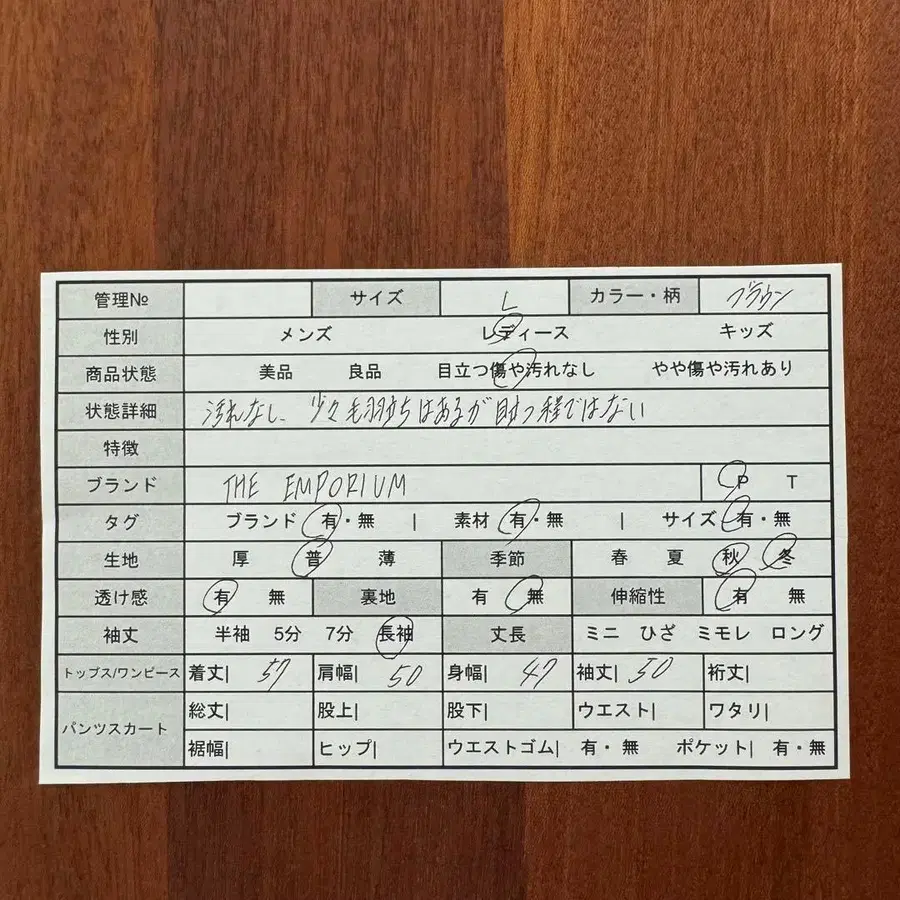 管理№ サイズ L カラー・柄 ブラウン
性別 メンズ レディース キッズ
商品状態 美品 良品 目立つ傷や汚れなし やや傷や汚れあり
状態詳細 汚れなし、少々毛羽立ちはあるが目立つ程ではない
特徴
ブランド THE EMPORIUM P T
タグ ブランド 有・無 | 素材 有・無 | サイズ 有・無
生地 厚 普 薄 季節 春 夏 秋 冬
透け感 有 無 裏地 有 無 伸縮性 有 無
袖丈 半袖 5分 7分 長袖 丈長 ミニ ひざ ミモレ ロング
トップス/ワンピース 着丈| 57 肩幅| 50 身幅| 47 袖丈| 50 裄丈|
パンツスカート 総丈| 股上| 股下| ウエスト| ワタリ|
裾幅| ヒップ| ウエストゴム| 有・無 ポケット| 有・無